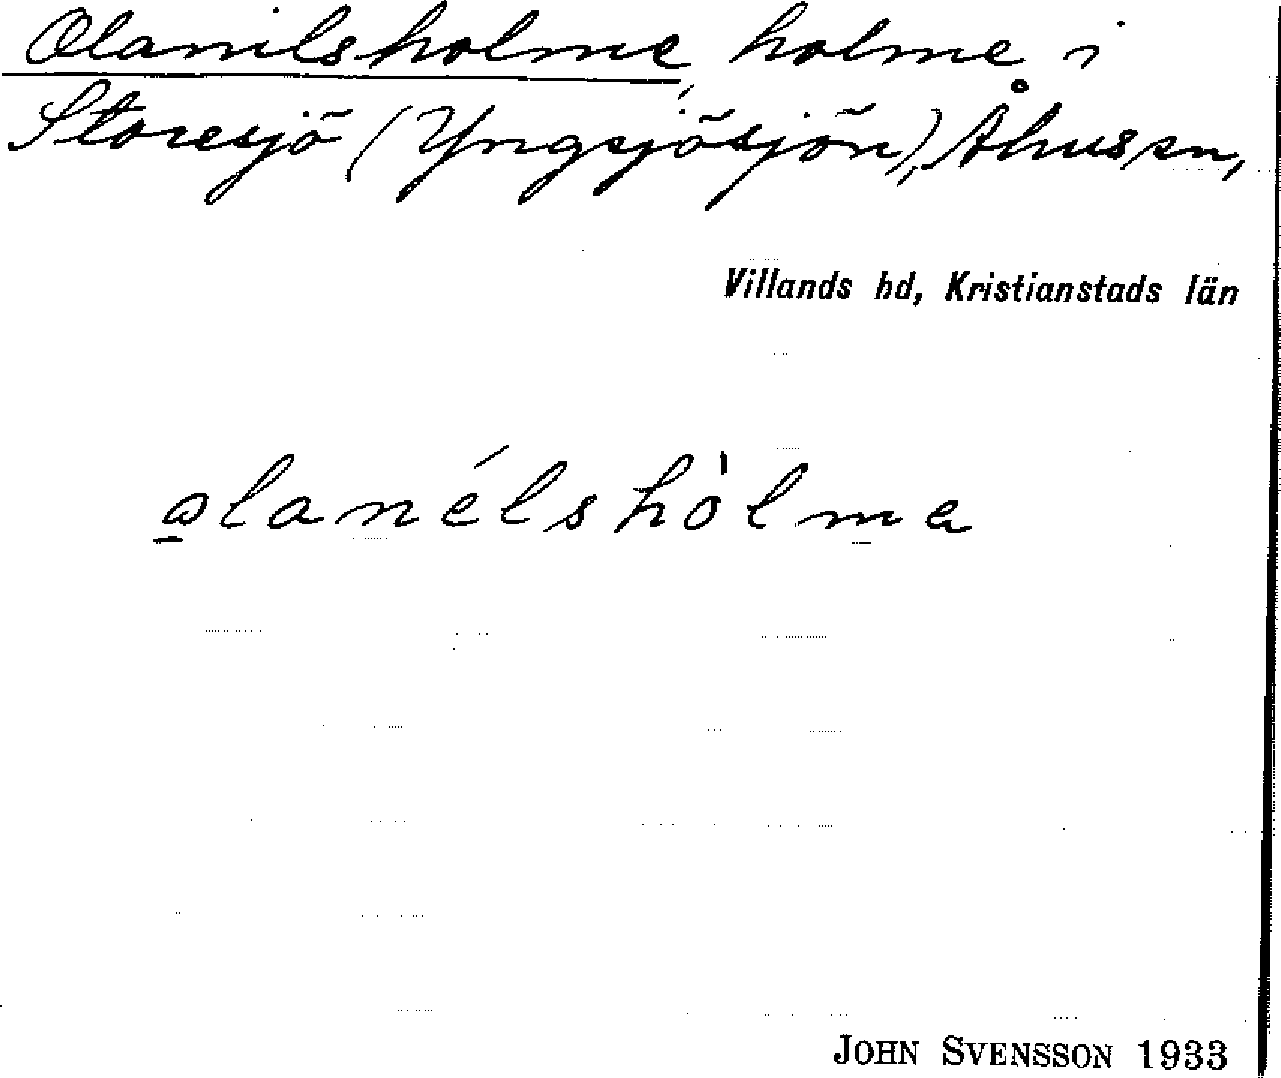 Olanilsholme, holme i
Storesjö (Yngsjösjön), Åhus sn,
Villands hd, Kristianstads län
olanélshòlma
JOHN SVENSSON 1933